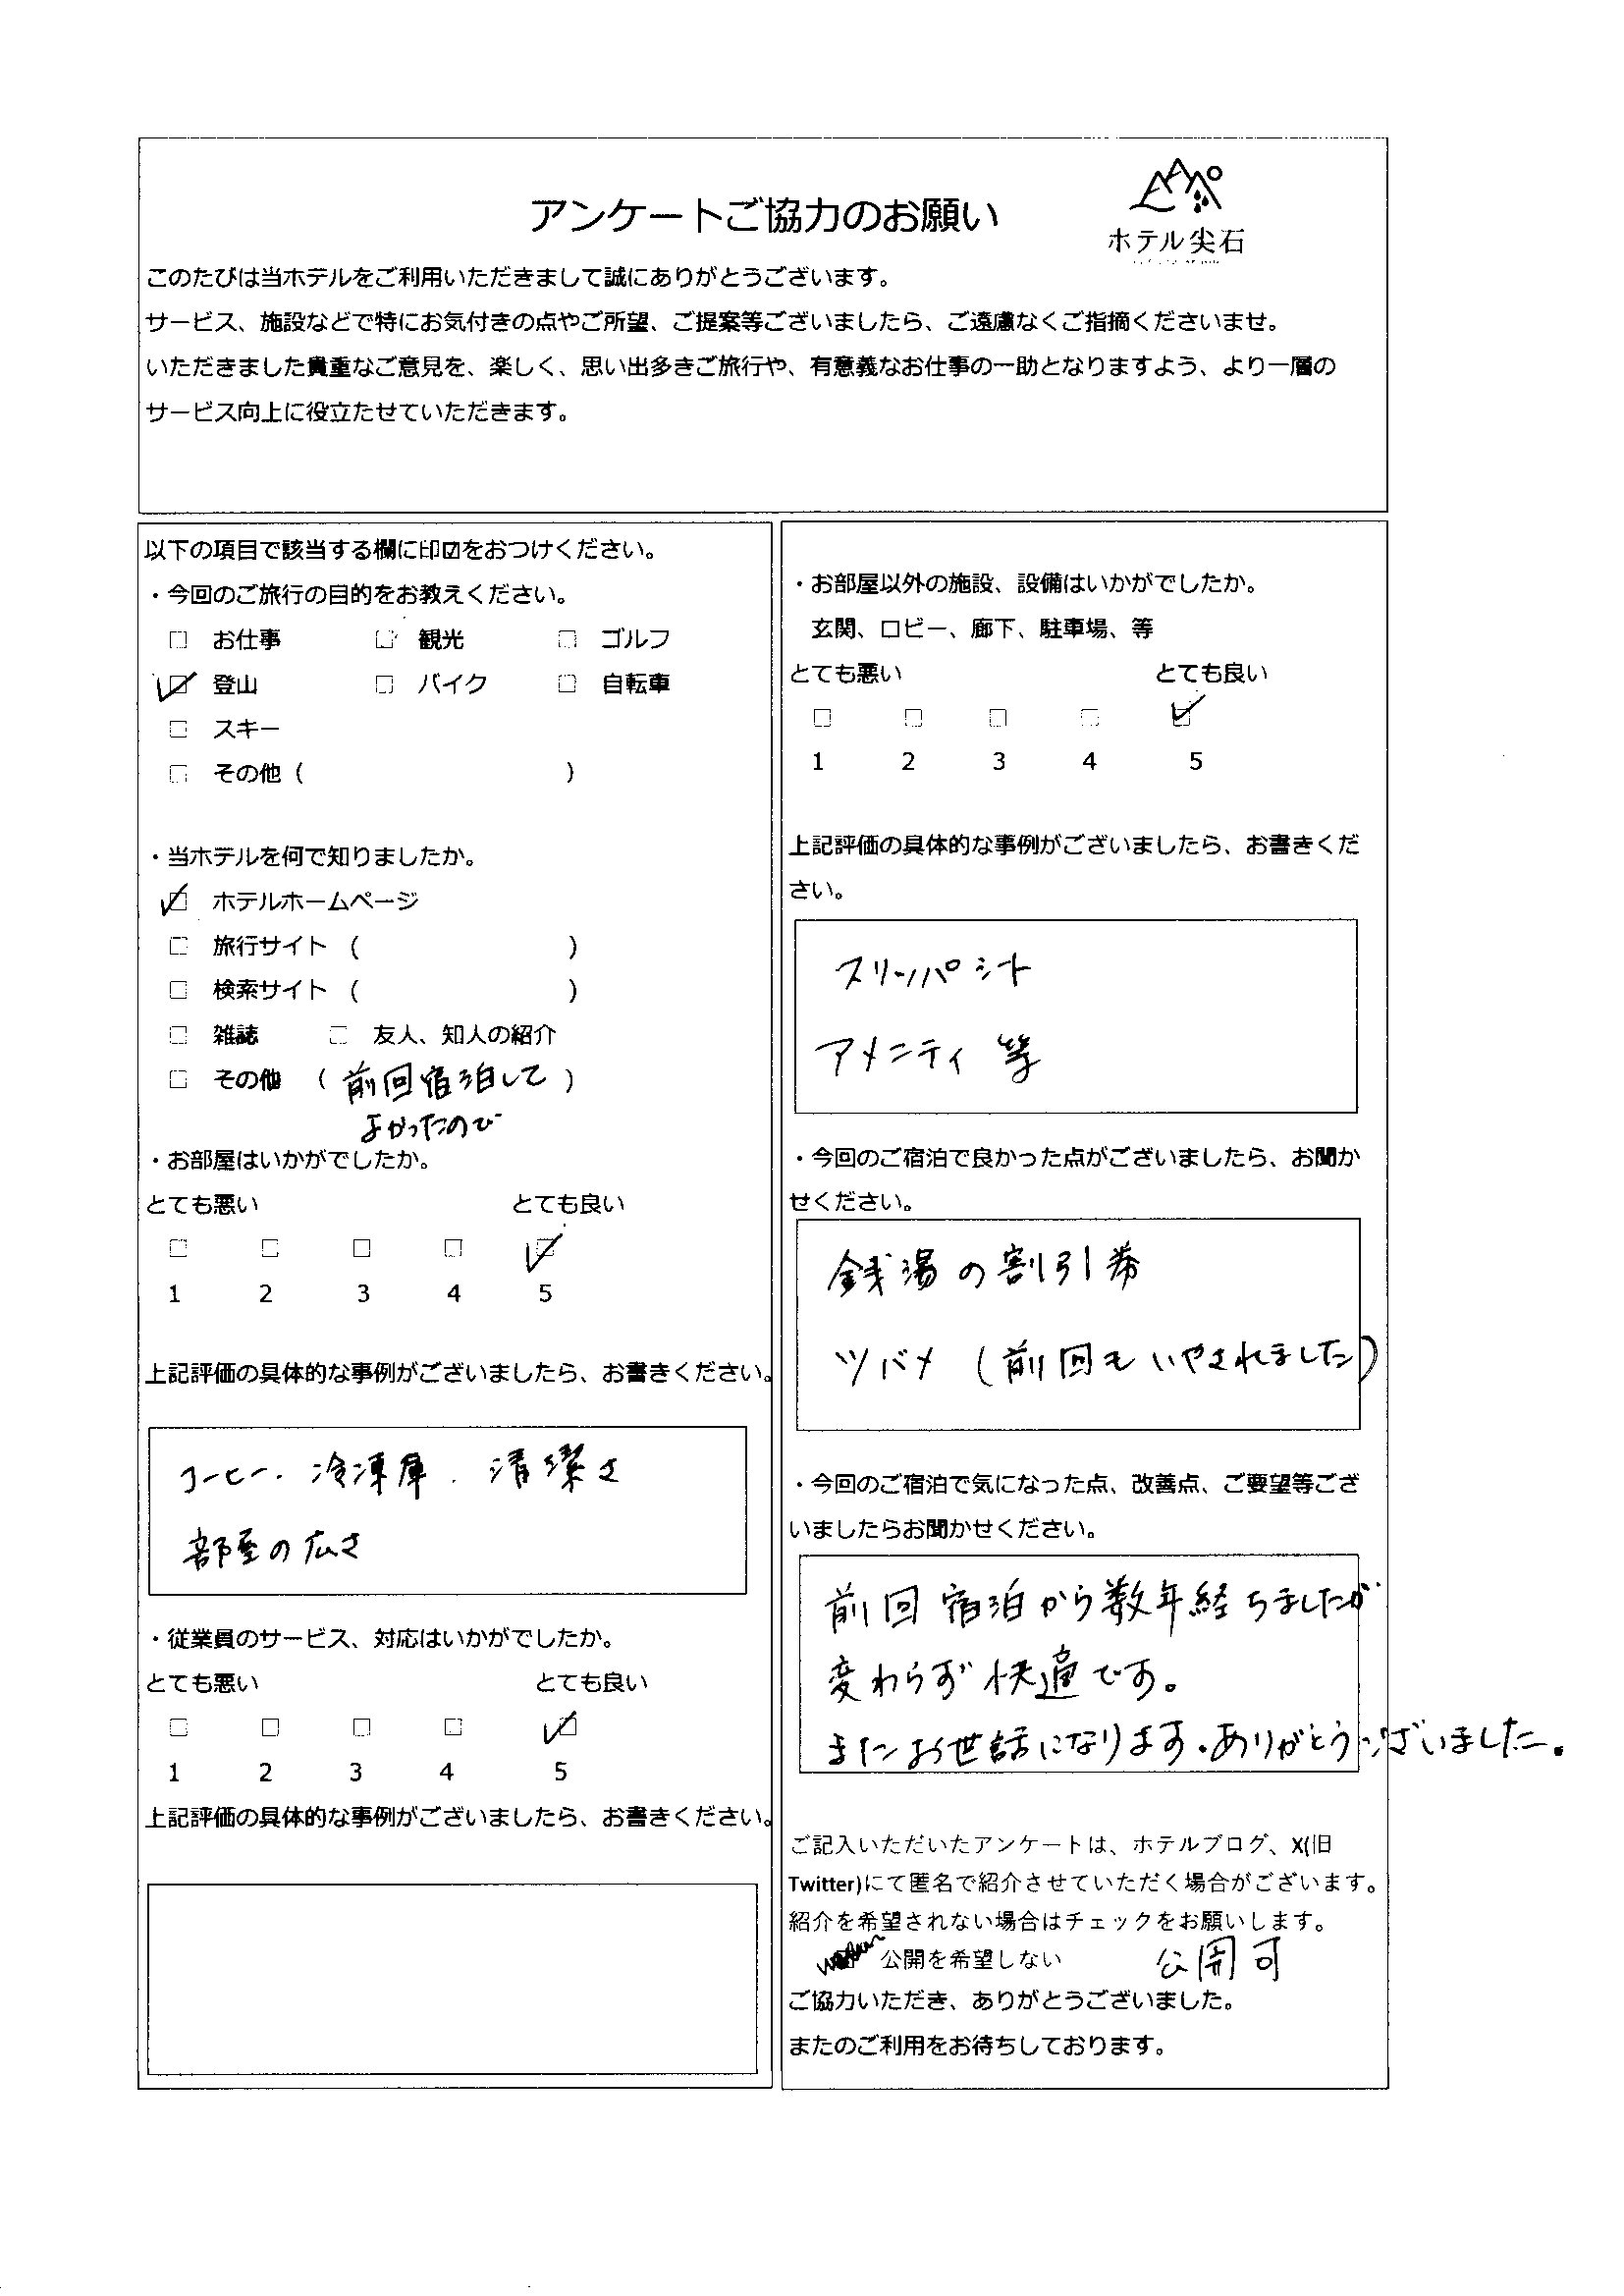 アンケートご協力のお願い
ホテル尖石
このたびは当ホテルをご利用いただきまして誠にありがとうございます。
サービス、施設などで特にお気付きの点やご所望、ご提案等ございましたら、ご遠慮なくご指摘くださいませ。
いただきました貴重なご意見を、楽しく、思い出多きご旅行や、有意義なお仕事の一助となりますよう、より一層の
サービス向上に役立たせていただきます。
以下の項目で該当する欄に印☑をおつけください。
・今回のご旅行の目的をお教えください。
□ お仕事 □ 観光 □ ゴルフ
☑ 登山 □ バイク □ 自転車
□ スキー
□ その他（ ）
・当ホテルを何で知りましたか。
☑ ホテルホームページ
□ 旅行サイト （ ）
□ 検索サイト （ ）
□ 雑誌 □ 友人、知人の紹介
□ その他 （前回宿泊して）
よかったので
・お部屋はいかがでしたか。
とても悪い とても良い
□ □ □ □ ☑
1 2 3 4 5
上記評価の具体的な事例がございましたら、お書きください。
コーヒー．冷凍庫．清潔さ
部屋の広さ
・従業員のサービス、対応はいかがでしたか。
とても悪い とても良い
□ □ □ □ ☑
1 2 3 4 5
上記評価の具体的な事例がございましたら、お書きください。
・お部屋以外の施設、設備はいかがでしたか。
玄関、ロビー、廊下、駐車場、等
とても悪い とても良い
□ □ □ □ ☑
1 2 3 4 5
上記評価の具体的な事例がございましたら、お書きくだ
さい。
スリッパシート
アメニティ 等
・今回のご宿泊で良かった点がございましたら、お聞か
せください。
銭湯の割引券
ツバメ（前回もいやされました）
・今回のご宿泊で気になった点、改善点、ご要望等ござ
いましたらお聞かせください。
前回宿泊から数年経ちましたが
変わらず快適です。
またお世話になります。ありがとうございました。
ご記入いただいたアンケートは、ホテルブログ、X(旧
Twitter)にて匿名で紹介させていただく場合がございます。
紹介を希望されない場合はチェックをお願いします。
公開を希望しない 公開可
ご協力いただき、ありがとうございました。
またのご利用をお待ちしております。